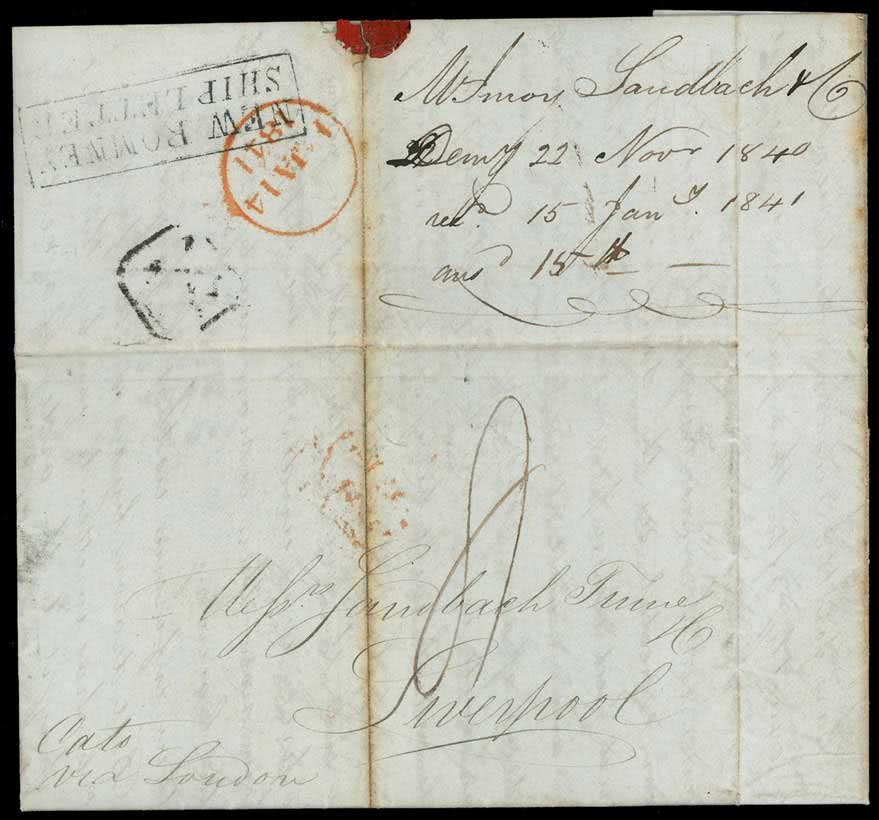 McInroy Sandbach & Co
Demy 22 Novr 1840
recd 15 Jany. 1841
ansd 15th
NEW ROMNEY
SHIP LETTER
JA 14
1841
8
Messrs Sandbach Tinne
& Co
Liverpool
Cato
via London